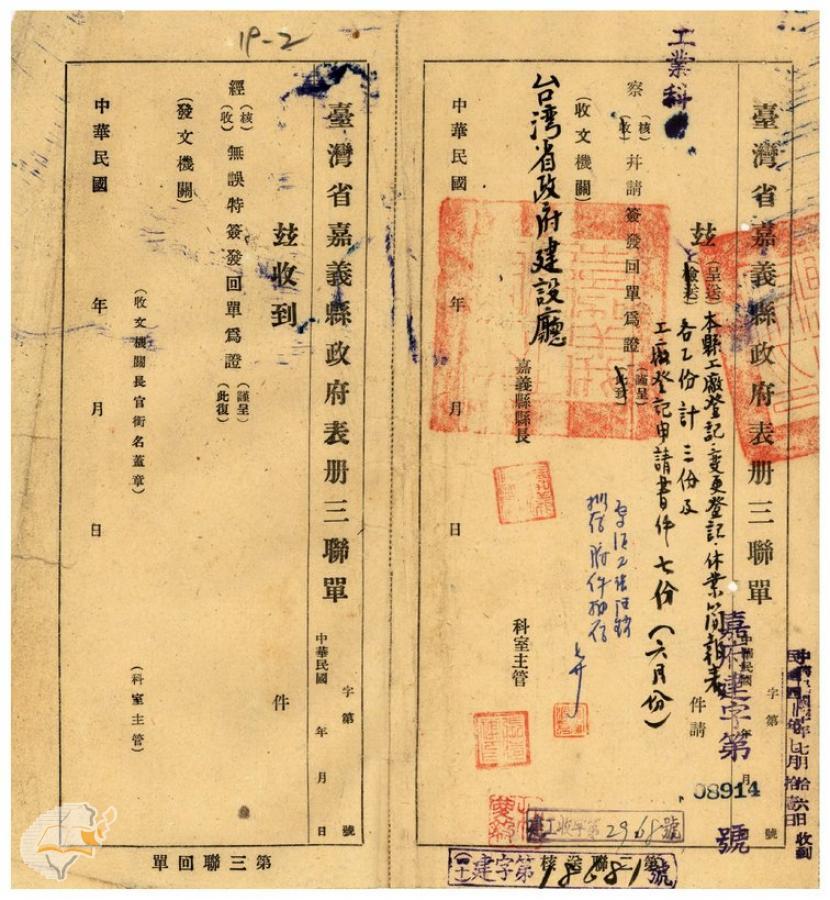 19-2
工業科
臺灣省嘉義縣政府表册三聯單
中華民國 年 月
字第 號
嘉府建字第 08914 號
玆（呈送）（檢送）
本縣工廠登記、變更登記、休業簡報表
各乙份計三份及
工廠登記申請書件七份（六月份）
件請
察（核）（收）并請簽發回單爲證（謹呈）（此致）
（收文機關）
台湾省政府建設廳
嘉義縣縣長
科室主管
中華民國 年 月 日
建工收字第2968號
建字第18681號
第二聯送核
臺灣省嘉義縣政府表册三聯單
中華民國 年 月 日
字第 號
玆收到 件
經（核）（收）無誤特簽發回單爲證（謹呈）（此復）
（發文機關）
（收文機關長官銜名蓋章）
（科室主管）
中華民國 年 月 日
第三聯回單